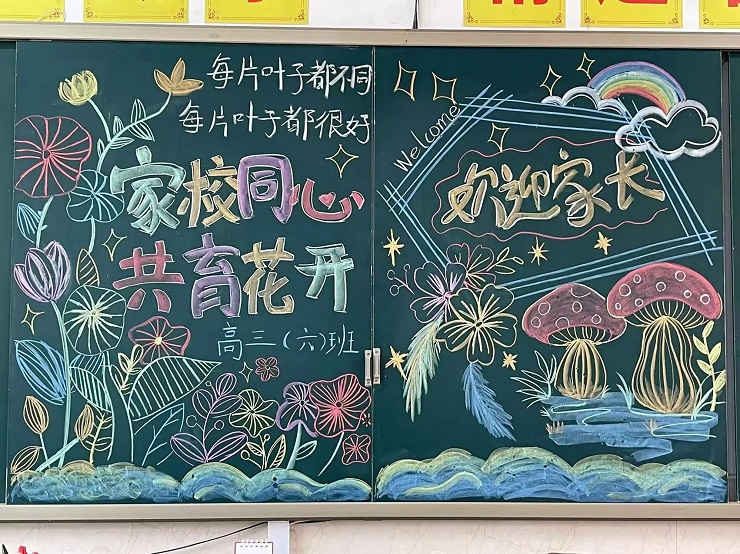 每片叶子都不同
每片叶子都很好
家校同心
共育花开
高三(六)班
Welcome
欢迎家长